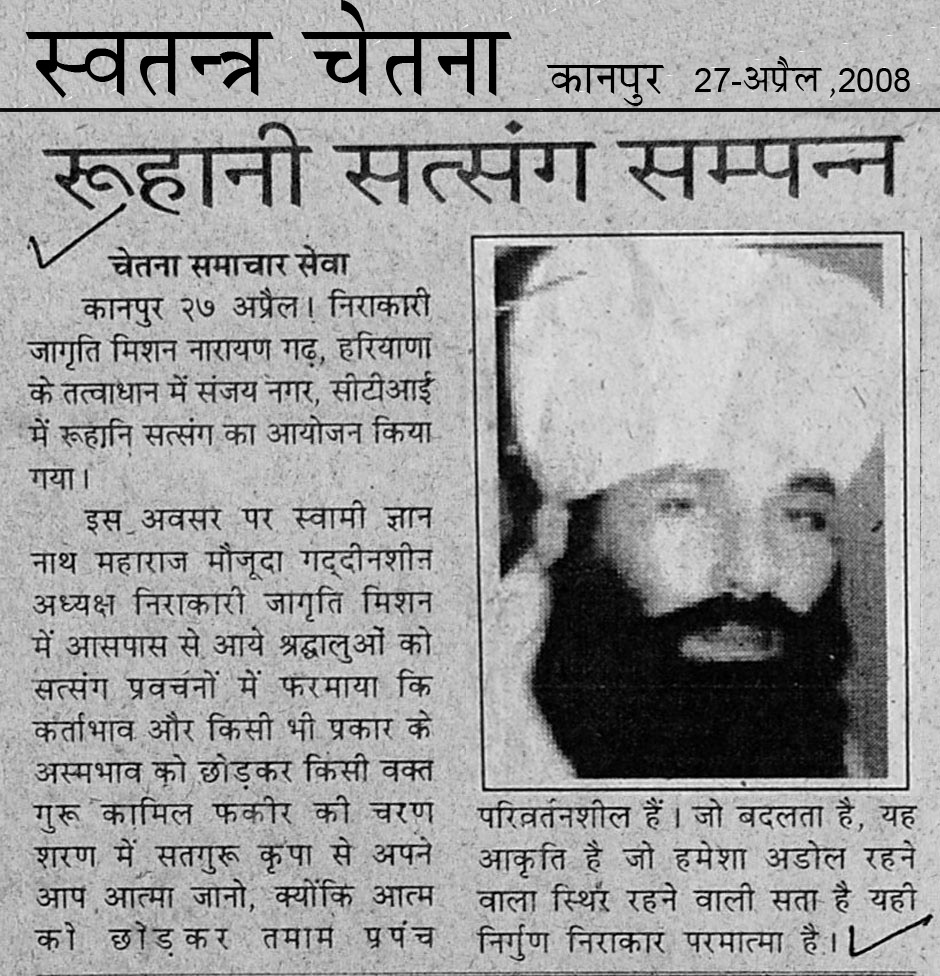 स्वतन्त्र चेतना कानपुर 27-अप्रैल ,2008
रूहानी सत्संग सम्पन्न
चेतना समाचार सेवा
कानपुर २७ अप्रैल। निराकारी
जागृति मिशन नारायण गढ़, हरियाणा
के तत्वाधान में संजय नगर, सीटीआई
में रूहानि सत्संग का आयोजन किया
गया।
इस अवसर पर स्वामी ज्ञान
नाथ महाराज मौजूदा गद्दीनशीन
अध्यक्ष निराकारी जागृति मिशन
में आसपास से आये श्रद्धालुओं को
सत्संग प्रवचनों में फरमाया कि
कर्ताभाव और किसी भी प्रकार के
अस्मभाव को छोड़कर किसी वक्त
गुरू कामिल फकीर की चरण
शरण में सतगुरू कृपा से अपने
आप आत्मा जानो, क्योंकि आत्म
को छोड़कर तमाम प्रपंच
परिवर्तनशील हैं। जो बदलता है, यह
आकृति है जो हमेशा अडोल रहने
वाला स्थिर रहने वाली सता है यही
निर्गुण निराकार परमात्मा है।